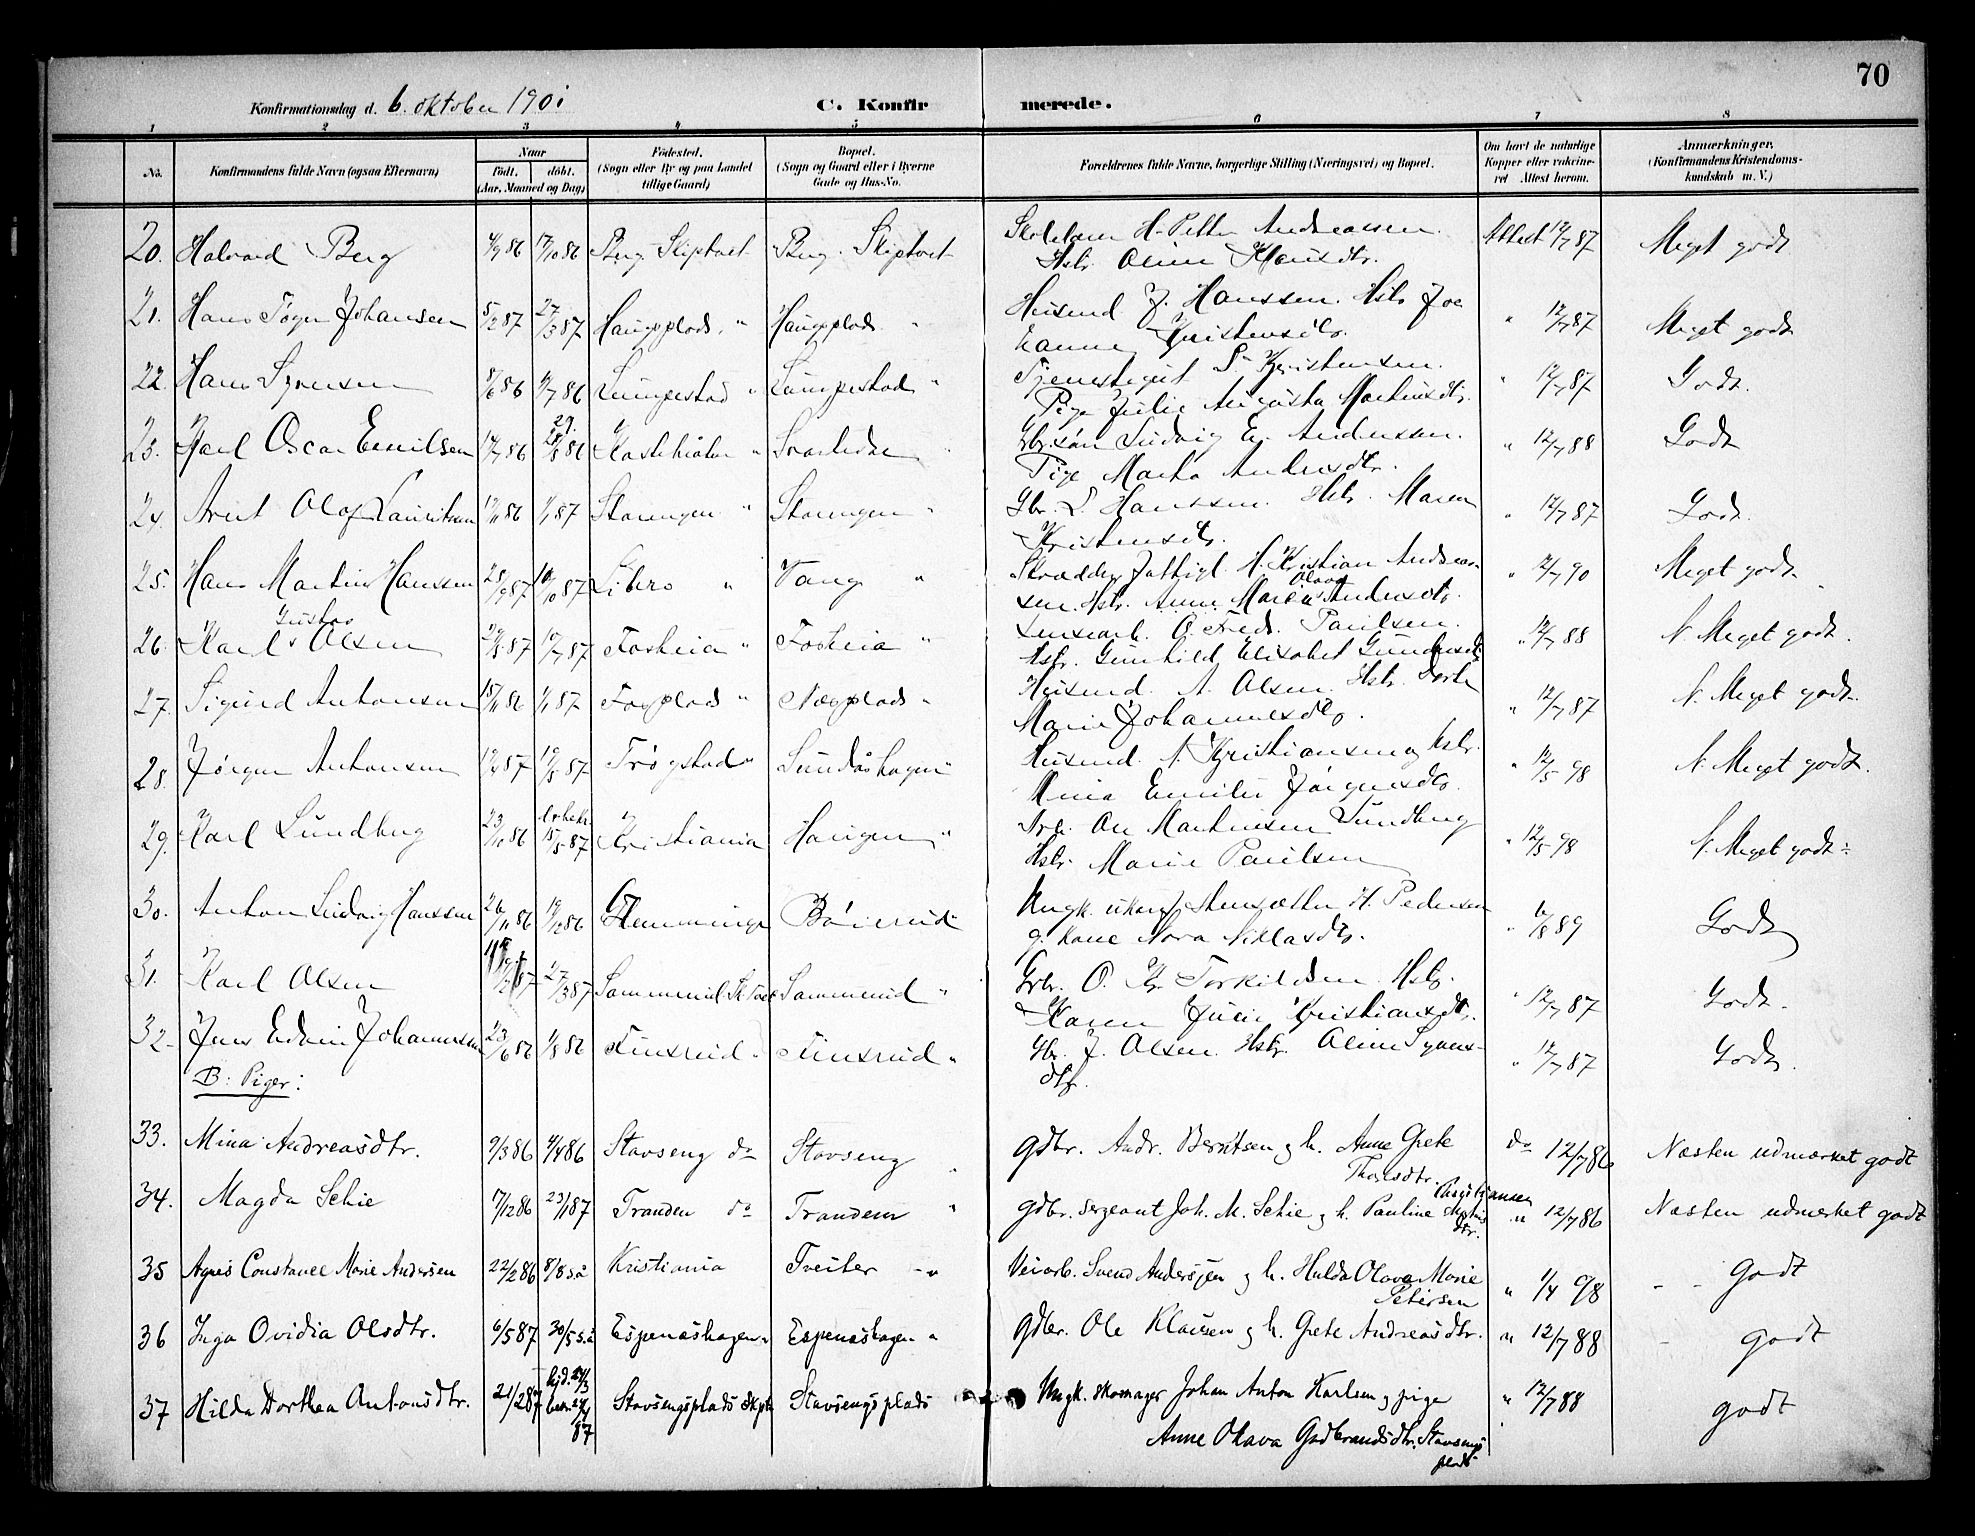 70
Konfirmationsdag d. 6. oktober 1901 C. Konfirmerede.
1 2 3 4 5 6 7 8
No. Konfirmandens fulde Navn (ogsaa Efternavn) Naar Født. døbt. (Aar, Maaned og Dag) Fødested. (Sogn eller By og paa Landet tillige Gaard) Bopæl. (Sogn og Gaard eller i Byerne Gade og Hus-No. Forældrenes fulde Navne, borgerlige Stilling (Næringsvei) og Bopæl. Om havt de naturlige Kopper eller vaccineret Attest herom. Anmærkninger. (Konfirmandens Kristendomskundskab m. V.)
20. Halvard Berg 4/9 86 17/10 86 Berg Skiptvet Berg. Skiptvet H. Petter Andreassen. Attest 12/7 87 Meget godt
Hstr. Oline Hansdtr.
21. Hans Johansen 5/2 87 27/3 87 Haugsplads. " Haugsplads " Husmd J. Hanssen. Hstr Jo- " 12/7 87 Meget godt
hanne Kristensdtr.
22. Hans Syversen 8/6 86 11/7 86 Lumpestad " Lumpestad " Tjenestegut S. Kristensen. " 12/7 87 Godt.
Pige Julie Augusta Martinsdtr.
23. Karl Oscar Emilsen 14/7 86 29/8 86 " Gbr.søn Ludvig E. Andersen. " 12/7 88 Godt
Pige Marta Andersdtr.
24. Arent Olaf Lauritsen 12/11 86 1/1 87 " " Gbr. L. Hanssen. Hstr. Maren " 12/7 87 Godt.
Kristensdtr.
25. Hans Martin Hanssen 25/9 87 16/10 87 Libro " Vang " Skrædder H. Kristian Andreas- " 12/7 90 Meget godt.
sen. Hstr. Anne Maren Olava Andersdtr.
26. Karl Gustav Olsen 29/5 87 10/7 87 Fosheia " Fosheia " O. Fred. Paulsen. " 12/7 88 N. Meget godt.
Hstr. Gunhild Elisabet Gundersdtr.
27. Sigurd Antonsen 15/11 86 1/1 87 " " Husmd. A. Olsen. Hstr. Dorte " 12/7 87 N. Meget godt.
Marie Johannesdtr.
28. Jørgen Antonsen 12/4 87 19/5 87 Trøgstad " Sundåshagen " Husmd. A. Kristiansen og hstr. " 12/5 98 N. Meget godt.
Mina Emilie Jørgensdtr.
29. Karl Lundberg 23/10 86 15/5 87 Kristiania Haugen " Martinsen Lundberg " 12/5 98 N. Meget godt:
Hstr. Marie Paulsen
30. Anton Ludvig Hanssen 26/11 86 19/12 86 Slemminge Børerud " Ungk. H. Pedersen " 6/8 89 Godt
g. kone Nora Niklasdtr.
31. Karl Olsen 27/3 87 Sammerud Sk.tvet Sammerud " Gbr. O. Kr. Torkildsen. Hstr. " 12/7 87 Godt.
Karen Julie Kristiansdtr.
32. Jens Edvin Johannesen 23/6 86 1/8 86 Finsrud " Finsrud " Gbr. J. Olsen. Hstr. Oline Syvers- " 12/7 87 Godt.
dtr.
B: Piger:
33. Mina Andreasdtr. 9/3 86 4/4 86 Stavseng do Stavseng " gdbr. Andr. Berntsen og h. Anne Grete do 12/7 86 Næsten udmærket godt
Thorsdtr.
34. Magda Schie 17/12 86 23/1 87 Tranden do Tranden " gdbr. sergeant Joh. M. Schie og h. Pauline " 12/7 86 Næsten udmerket godt
35 Agnes Constance Marie Andersen 22/2 86 8/8 s.å Kristiania Treiter " Veiarb. Svend Andersen og h. Hulda Olava Marie " 1/4 98 - - Godt
Petersen
36 Inga Ovidia Olsdtr. 6/5 87 30/5 s.å Espenæshagen " Espenæshagen " gdbr. Ole Klausen og h. Grete Andreasdtr. " 12/7 88 - godt
37 Hilda Dorthea Antonsdtr. 21/2 87 hjd. 27/3 87 Stavsengsplads Skptv Stavsengsplads Ungk. skomager Johan Anton Karlsen og pige " 12/7 88 godt
Anne Olava Gudbrandsdtr. Stavsengs
plads